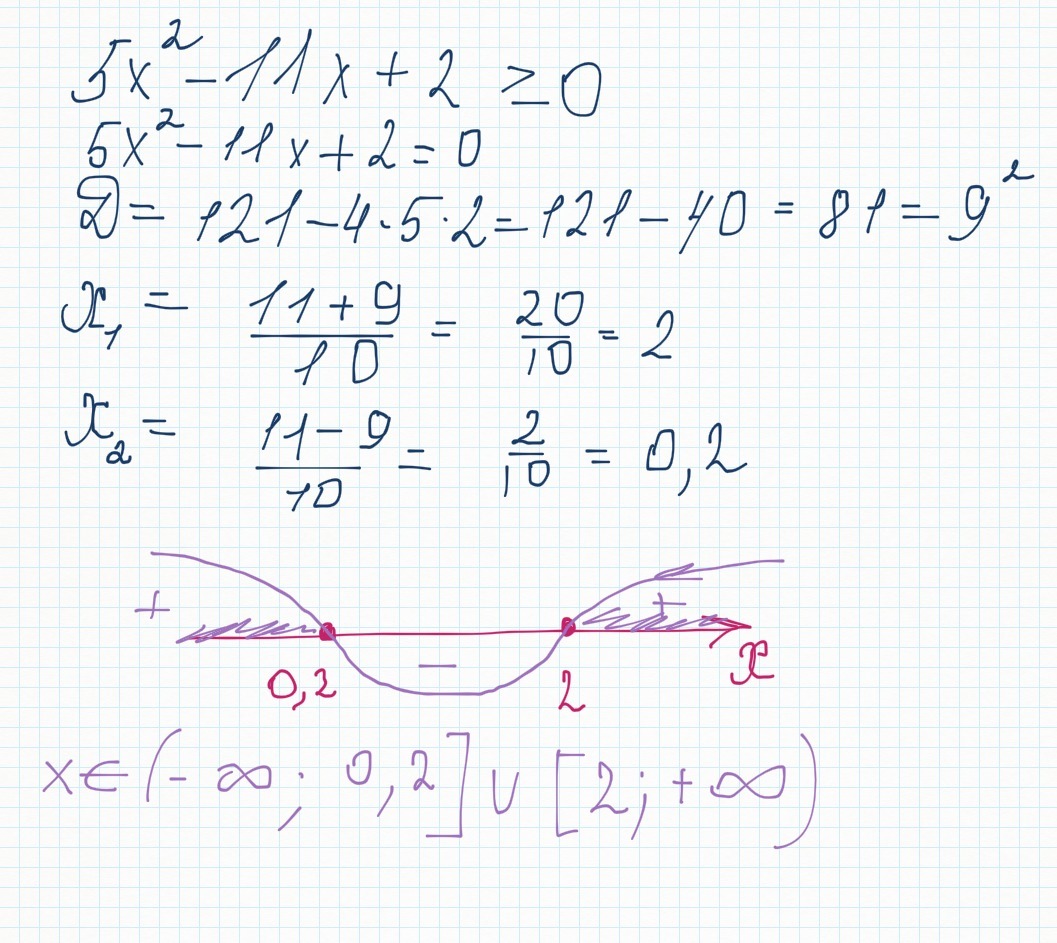 5x² - 11x + 2 ≥ 0
5x² - 11x + 2 = 0
D = 121 - 4·5·2 = 121 - 40 = 81 = 9²
x₁ = (11 + 9)/10 = 20/10 = 2
x₂ = (11 - 9)/10 = 2/10 = 0,2
+ − +
0,2 2 x
x ∈ (-∞; 0,2] ∪ [2; +∞)